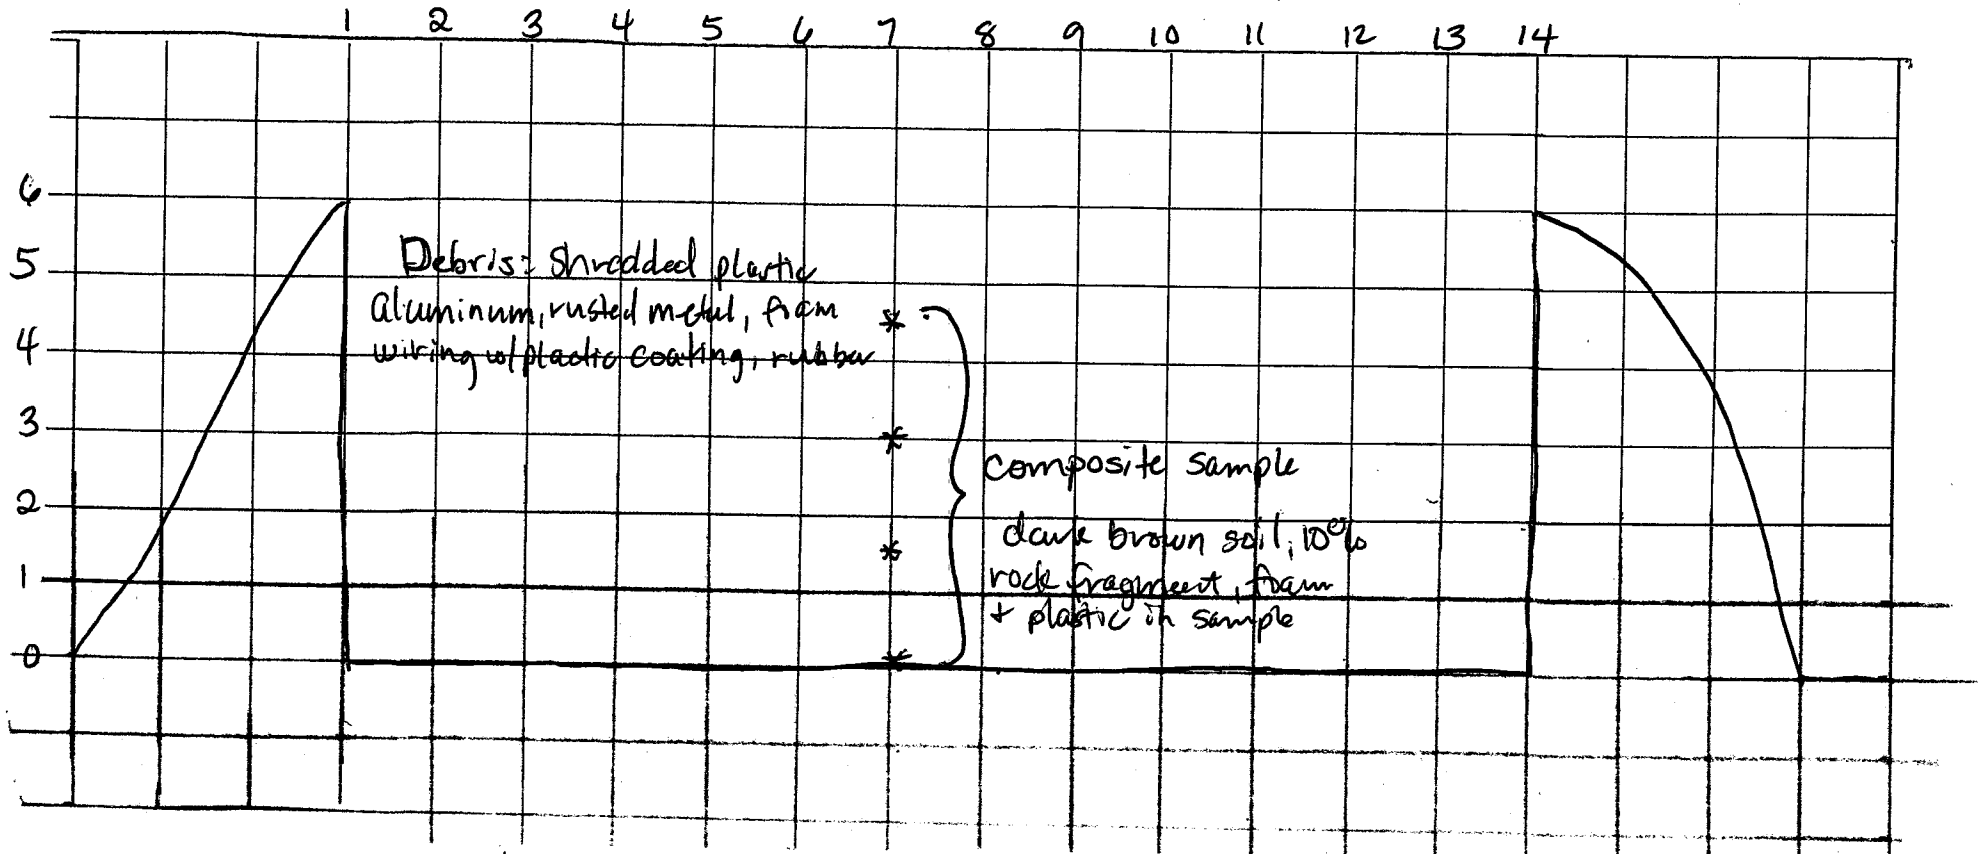 1 2 3 4 5 6 7 8 9 10 11 12 13 14
6
5
4
3
2
1
0
Debris: Shredded plastic
aluminum, rusted metal, foam
wiring w/plastic coating, rubber
composite sample
dark brown soil, 10%
rock fragment, foam
+ plastic in sample